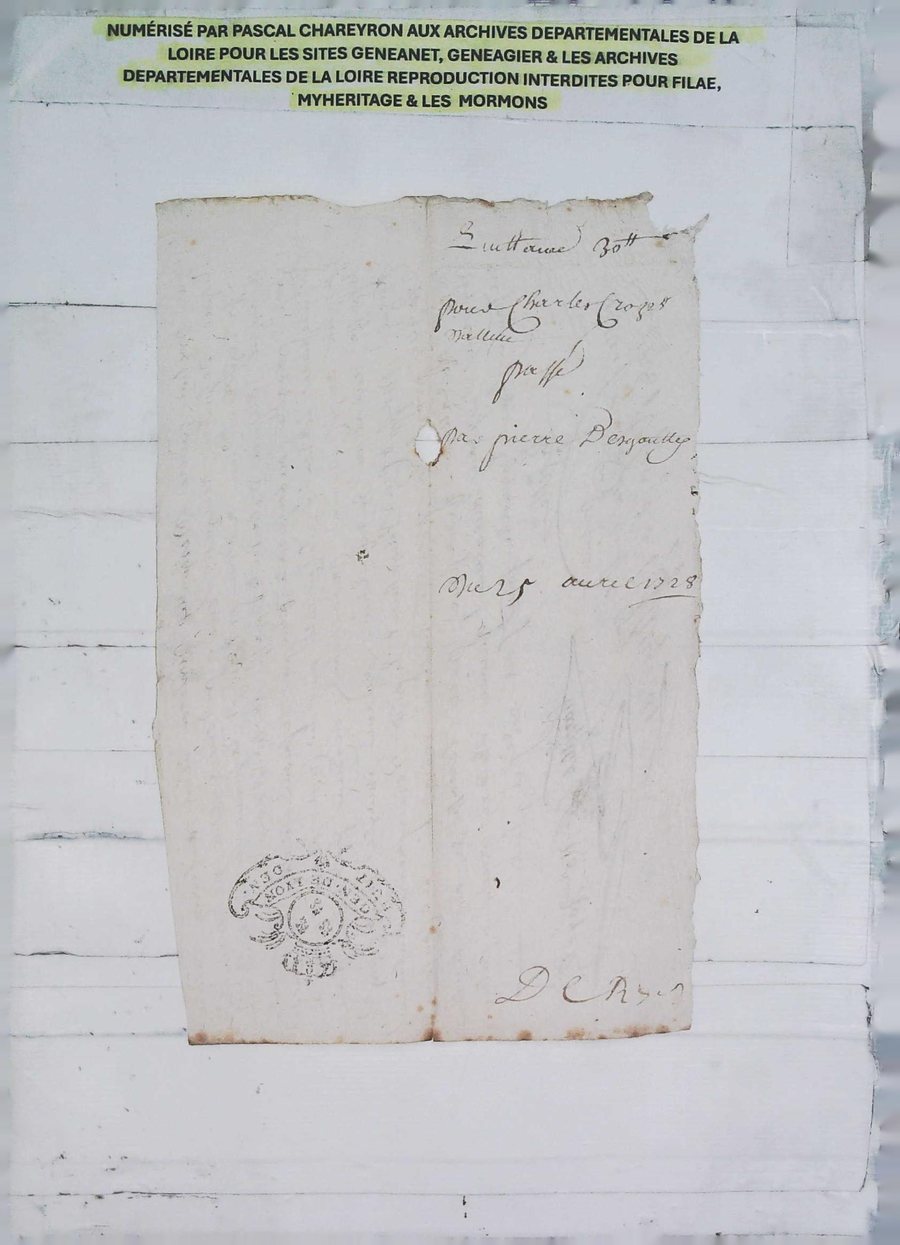 NUMÉRISÉ PAR PASCAL CHAREYRON AUX ARCHIVES DEPARTEMENTALES DE LA
LOIRE POUR LES SITES GENEANET, GENEAGIER & LES ARCHIVES
DEPARTEMENTALES DE LA LOIRE REPRODUCTION INTERDITES POUR FILAE,
MYHERITAGE & LES MORMONS
Quittance 30tt
pour Charles Crozet
passé
par pierre Desgoutte
du 25 auril 1728
GEN DE LYON